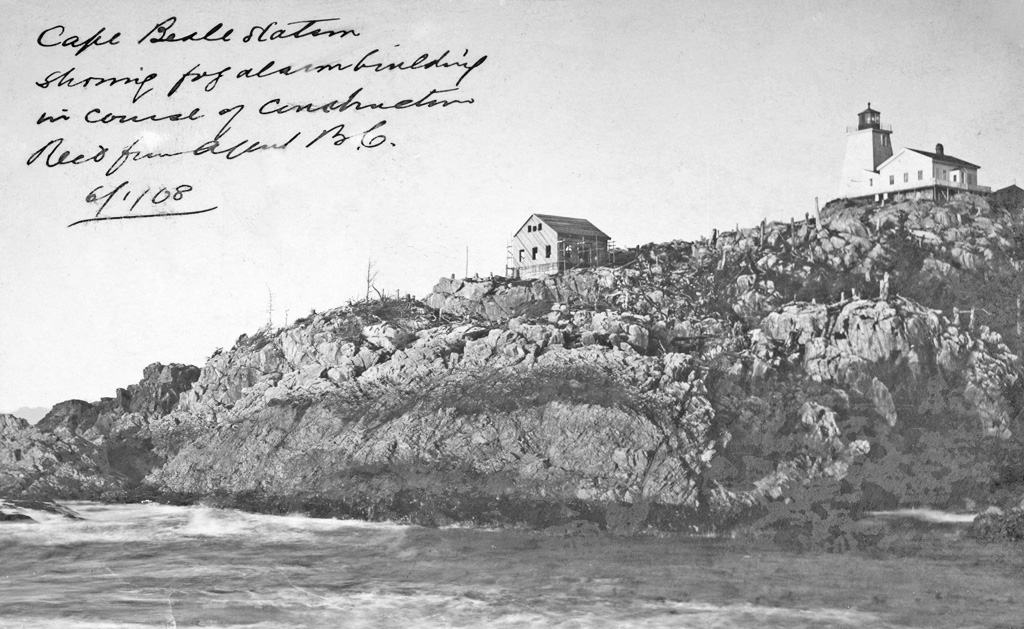 Cape Beale Station
showing fog alarm building
in course of Construction
Rec'd from Agent B.C.
6/1/08